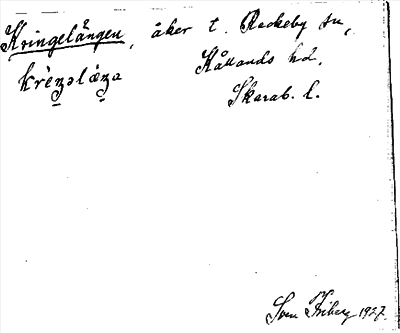 Kringelången, åker t. Rackeby sn,
Kållands hd.
Skarab. l.
Sven Friberg 1927.